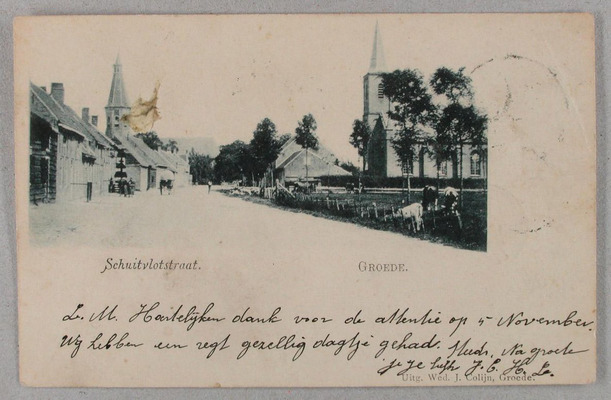 Schuitvlotstraat. GROEDE.
L. M. Hartelijken dank voor de attentie op 5 November.
Wij hebben een regt gezellig dagtje gehad. Na groete
je J. C. H. L.
Uitg. Wed. J. Colijn, Groede.